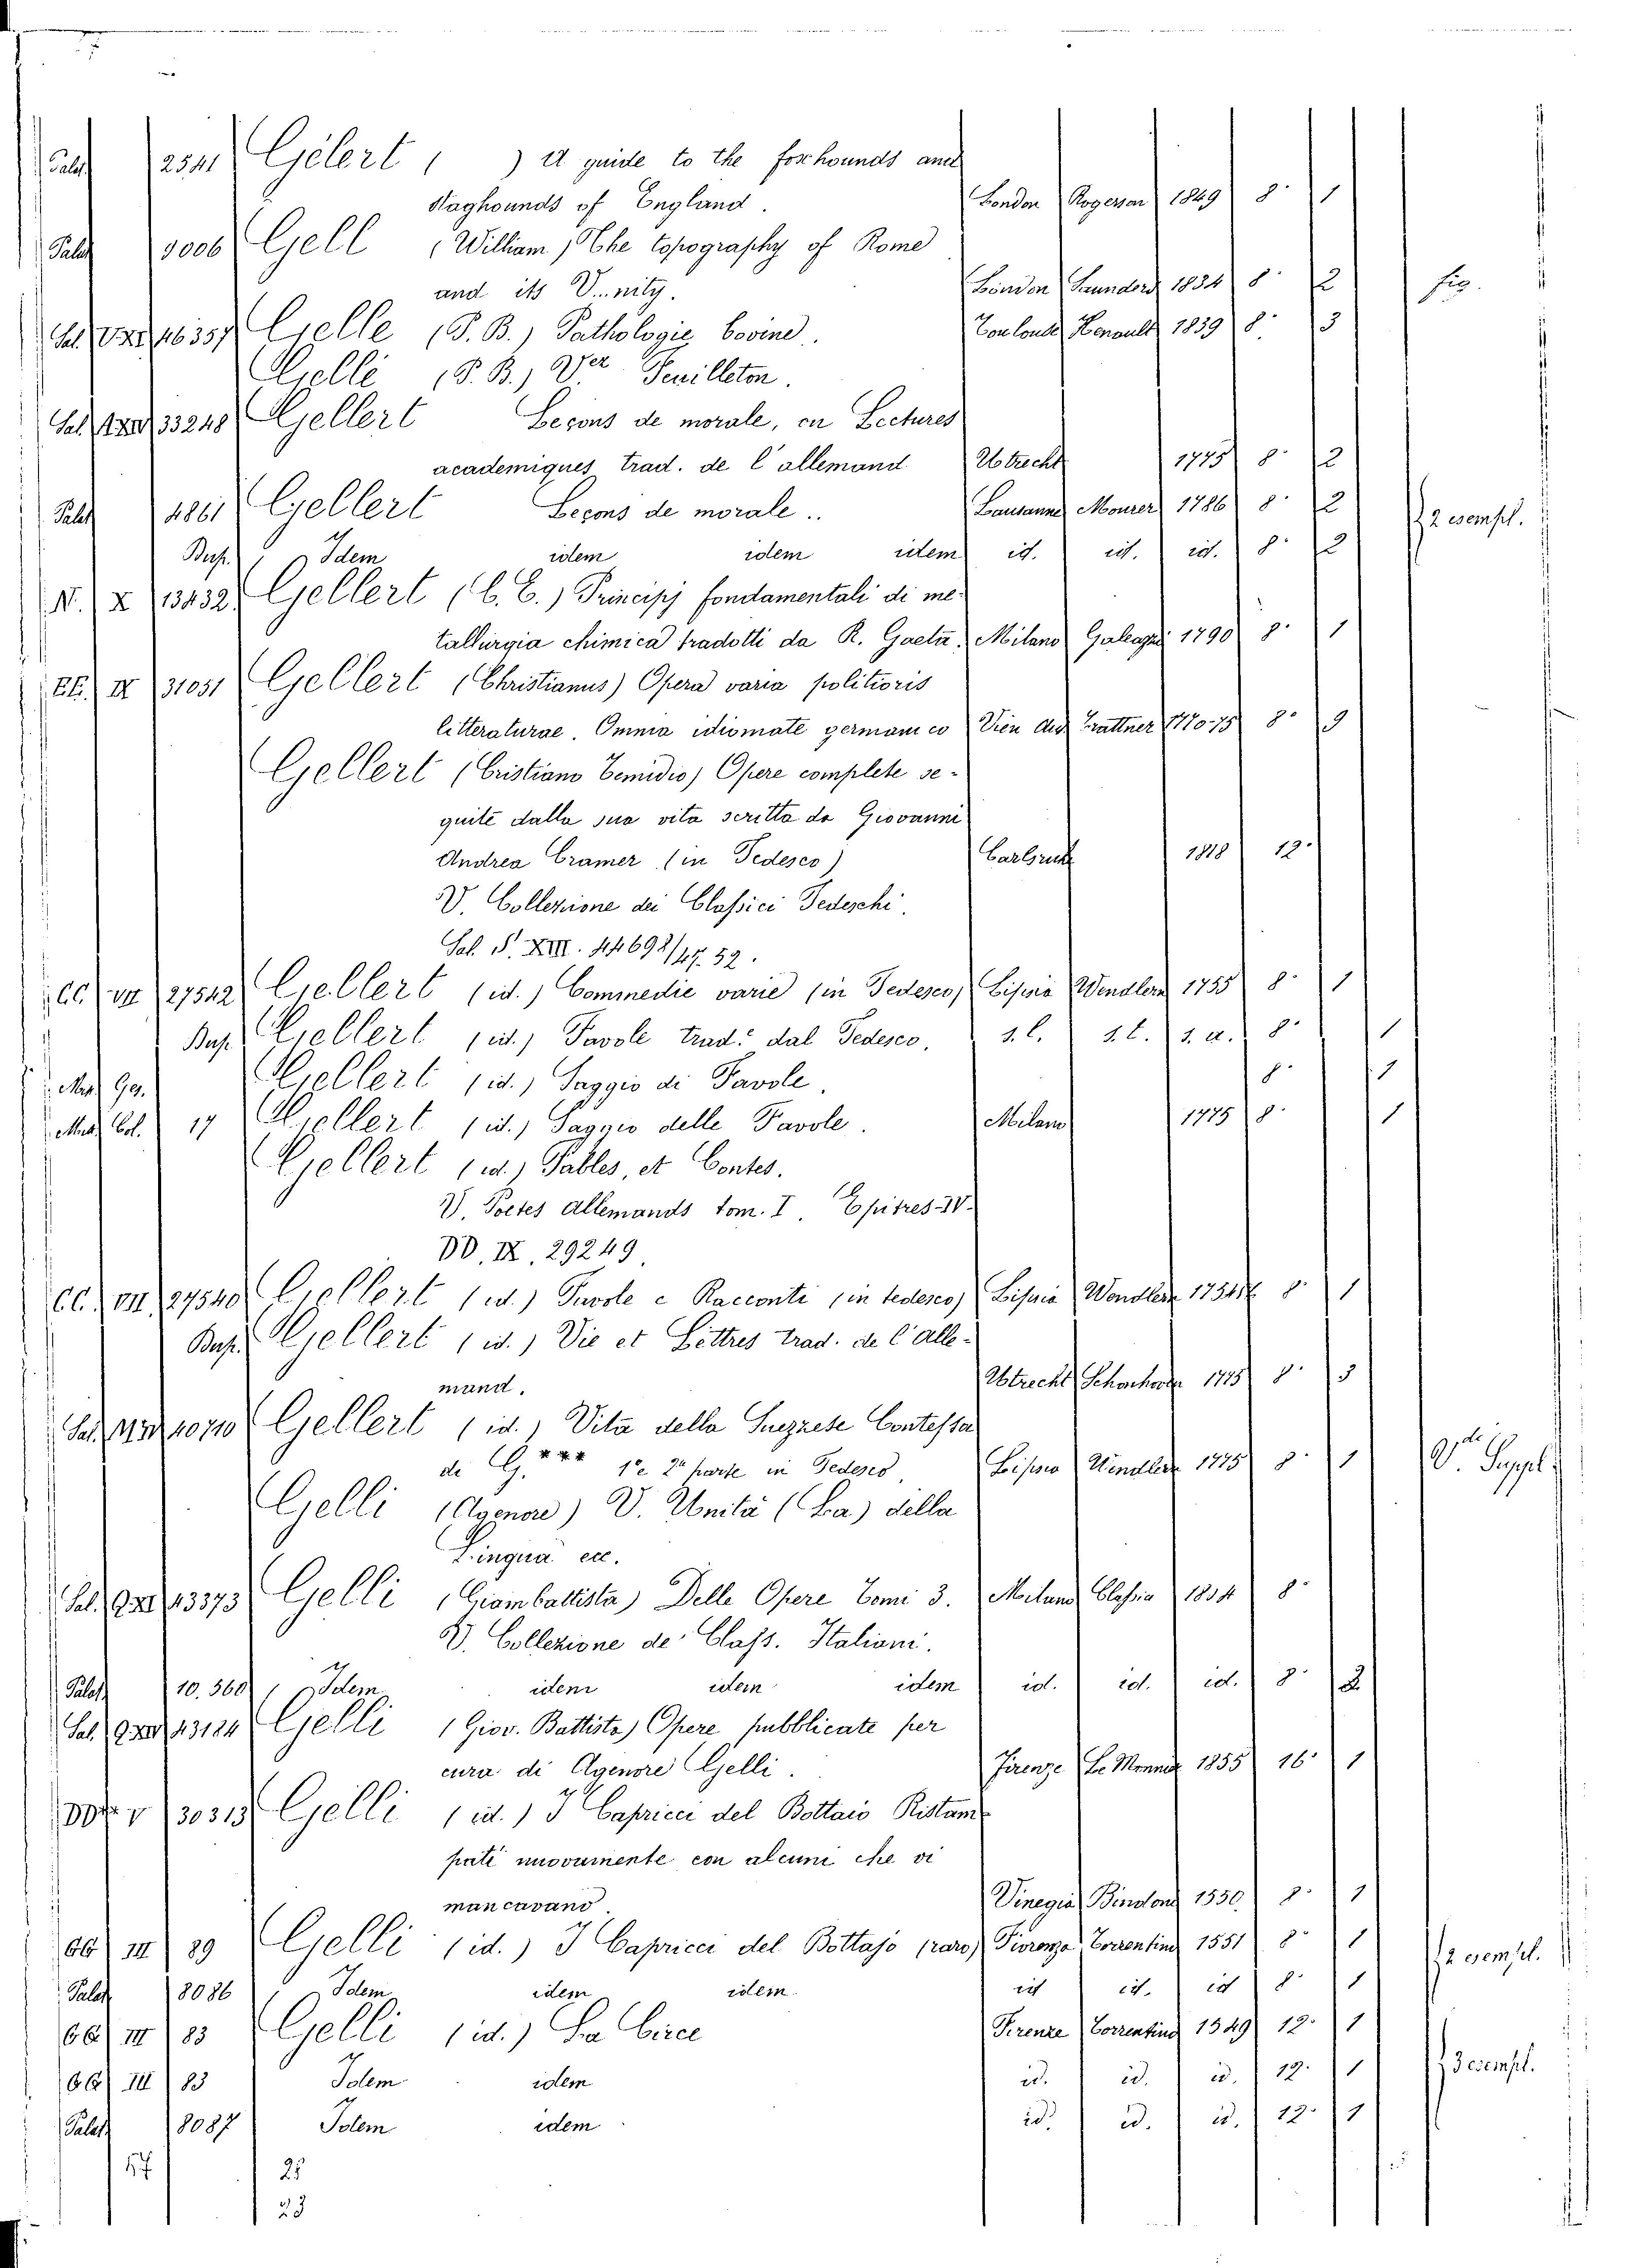 Palat. 2541 Gelert ( ) A guide to the foxhounds and
Staghounds of England. London Rogerson 1849 8° 1
Palat. 9006 Gell (William) The topography of Rome
and its V...nity. London Saunders 1834 8° 2 fig.
Sal. 46357 Gelle (P. B.) Pathologie bovine. Toulouse Henault 1839 8° 3
Gellé (P. B.) Ver Feuilleton.
Sal. 33248 Gellert Leçons de morale, ou Lectures
academiques trad. de l'allemand Utrecht 1775 8° 2
Palat. 4861 Gellert Leçons de morale.. Lausanne Mourer 1786 8° 2 2 esempl.
Busp. Idem idem idem idem id. id. id. 8° 2
N. X 13432 Gellert (C. E.) Principj fondamentali di me-
tallurgia chimica tradotti da R. Gaeta. Milano Galeazzi 1790 8° 1
EE. IX 31051 Gellert (Christianus) Opera varia politioris
litteraturae. Omnia idiomate germanico Vien Aus Trattner 1770-75 8° 9
Gellert (Cristiano Temidio) Opere complete se-
guite dalla sua vita scritta da Giovanni
Andrea Cramer (in Tedesco) Carlsruh 1818 12°
V. Collezione dei Classici Tedeschi.
Sal. S. XIII. 44698/47.52.
CC. VII 27542 Gellert (id.) Commedie varie (in Tedesco) Lipsia Wendlern 1755 8° 1
Busp. Gellert (id.) Favole trad. dal Tedesco. s. l. s. t. s. a. 8° 1
Mus. Ges. Gellert (id.) Saggio di Favole. 8° 1
Mus. Col. 17 Gellert (id.) Saggio delle Favole. Milano 1775 8° 1
Gellert (id.) Fables, et Contes.
V. Poetes Allemands tom. I. Epitres IV.
DD. IX. 29249
CC. VII 27540 Gellert (id.) Favole e Racconti (in tedesco) Lipsia Wendlern 8° 1
Busp. Gellert (id.) Vie et Lettres trad. de l'Alle-
mand. Utrecht 1775 8° 3
Sal. 40710 Gellert (id.) Vita della Suezzese Contessa
di G.**** 1a e 2a parte in Tedesco. Lipsia Windlern 1775 8° 1 Vde Suppl.
Gelli (Agenore) V. Unità (La) della
Lingua ecc.
Sal. 43373 Gelli (Giambattista) Delle Opere Tomi 3. Milano Classici 1804 8°
V. Collezione de' Class. Italiani.
Palat. 10.360 Idem idem idem idem id. id. id. 8° 2
Sal. 43124 Gelli (Giov. Battista) Opere pubblicate per
cura di Agenore Gelli. Firenze Le Monnier 1855 16° 1
V 30313 Gelli (id.) I Capricci del Bottaio Ristam-
pati nuovamente con alcuni che vi
mancavano. Vinegia Bindoni 1550 8° 1
BB. III 89 Gelli (id.) I Capricci del Bottajo (raro) Fiorenza Torrentino 1551 8° 1 2 esempl.
Palat. 8086 Idem idem idem id. id. id. 8° 1
BB. III 83 Gelli (id.) La Circe Firenze Torrentino 1549 12° 1
BB. III 83 Idem idem id. id. id. 12° 1 3 esempl.
Palat. 8087 Idem idem id. id. id. 12° 1
57 25
23